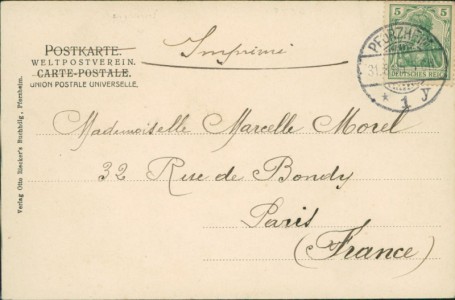 POSTKARTE.
WELTPOSTVEREIN.
CARTE-POSTALE.
UNION POSTALE UNIVERSELLE.
Imprimé
5 5
DEUTSCHES REICH
PFORZHEIM
31.
* 1 y
Mademoiselle Marcelle Morel
32 Rue de Bondy
Paris
(France)
Verlag Otto Riecker's Buchhdlg., Pforzheim.